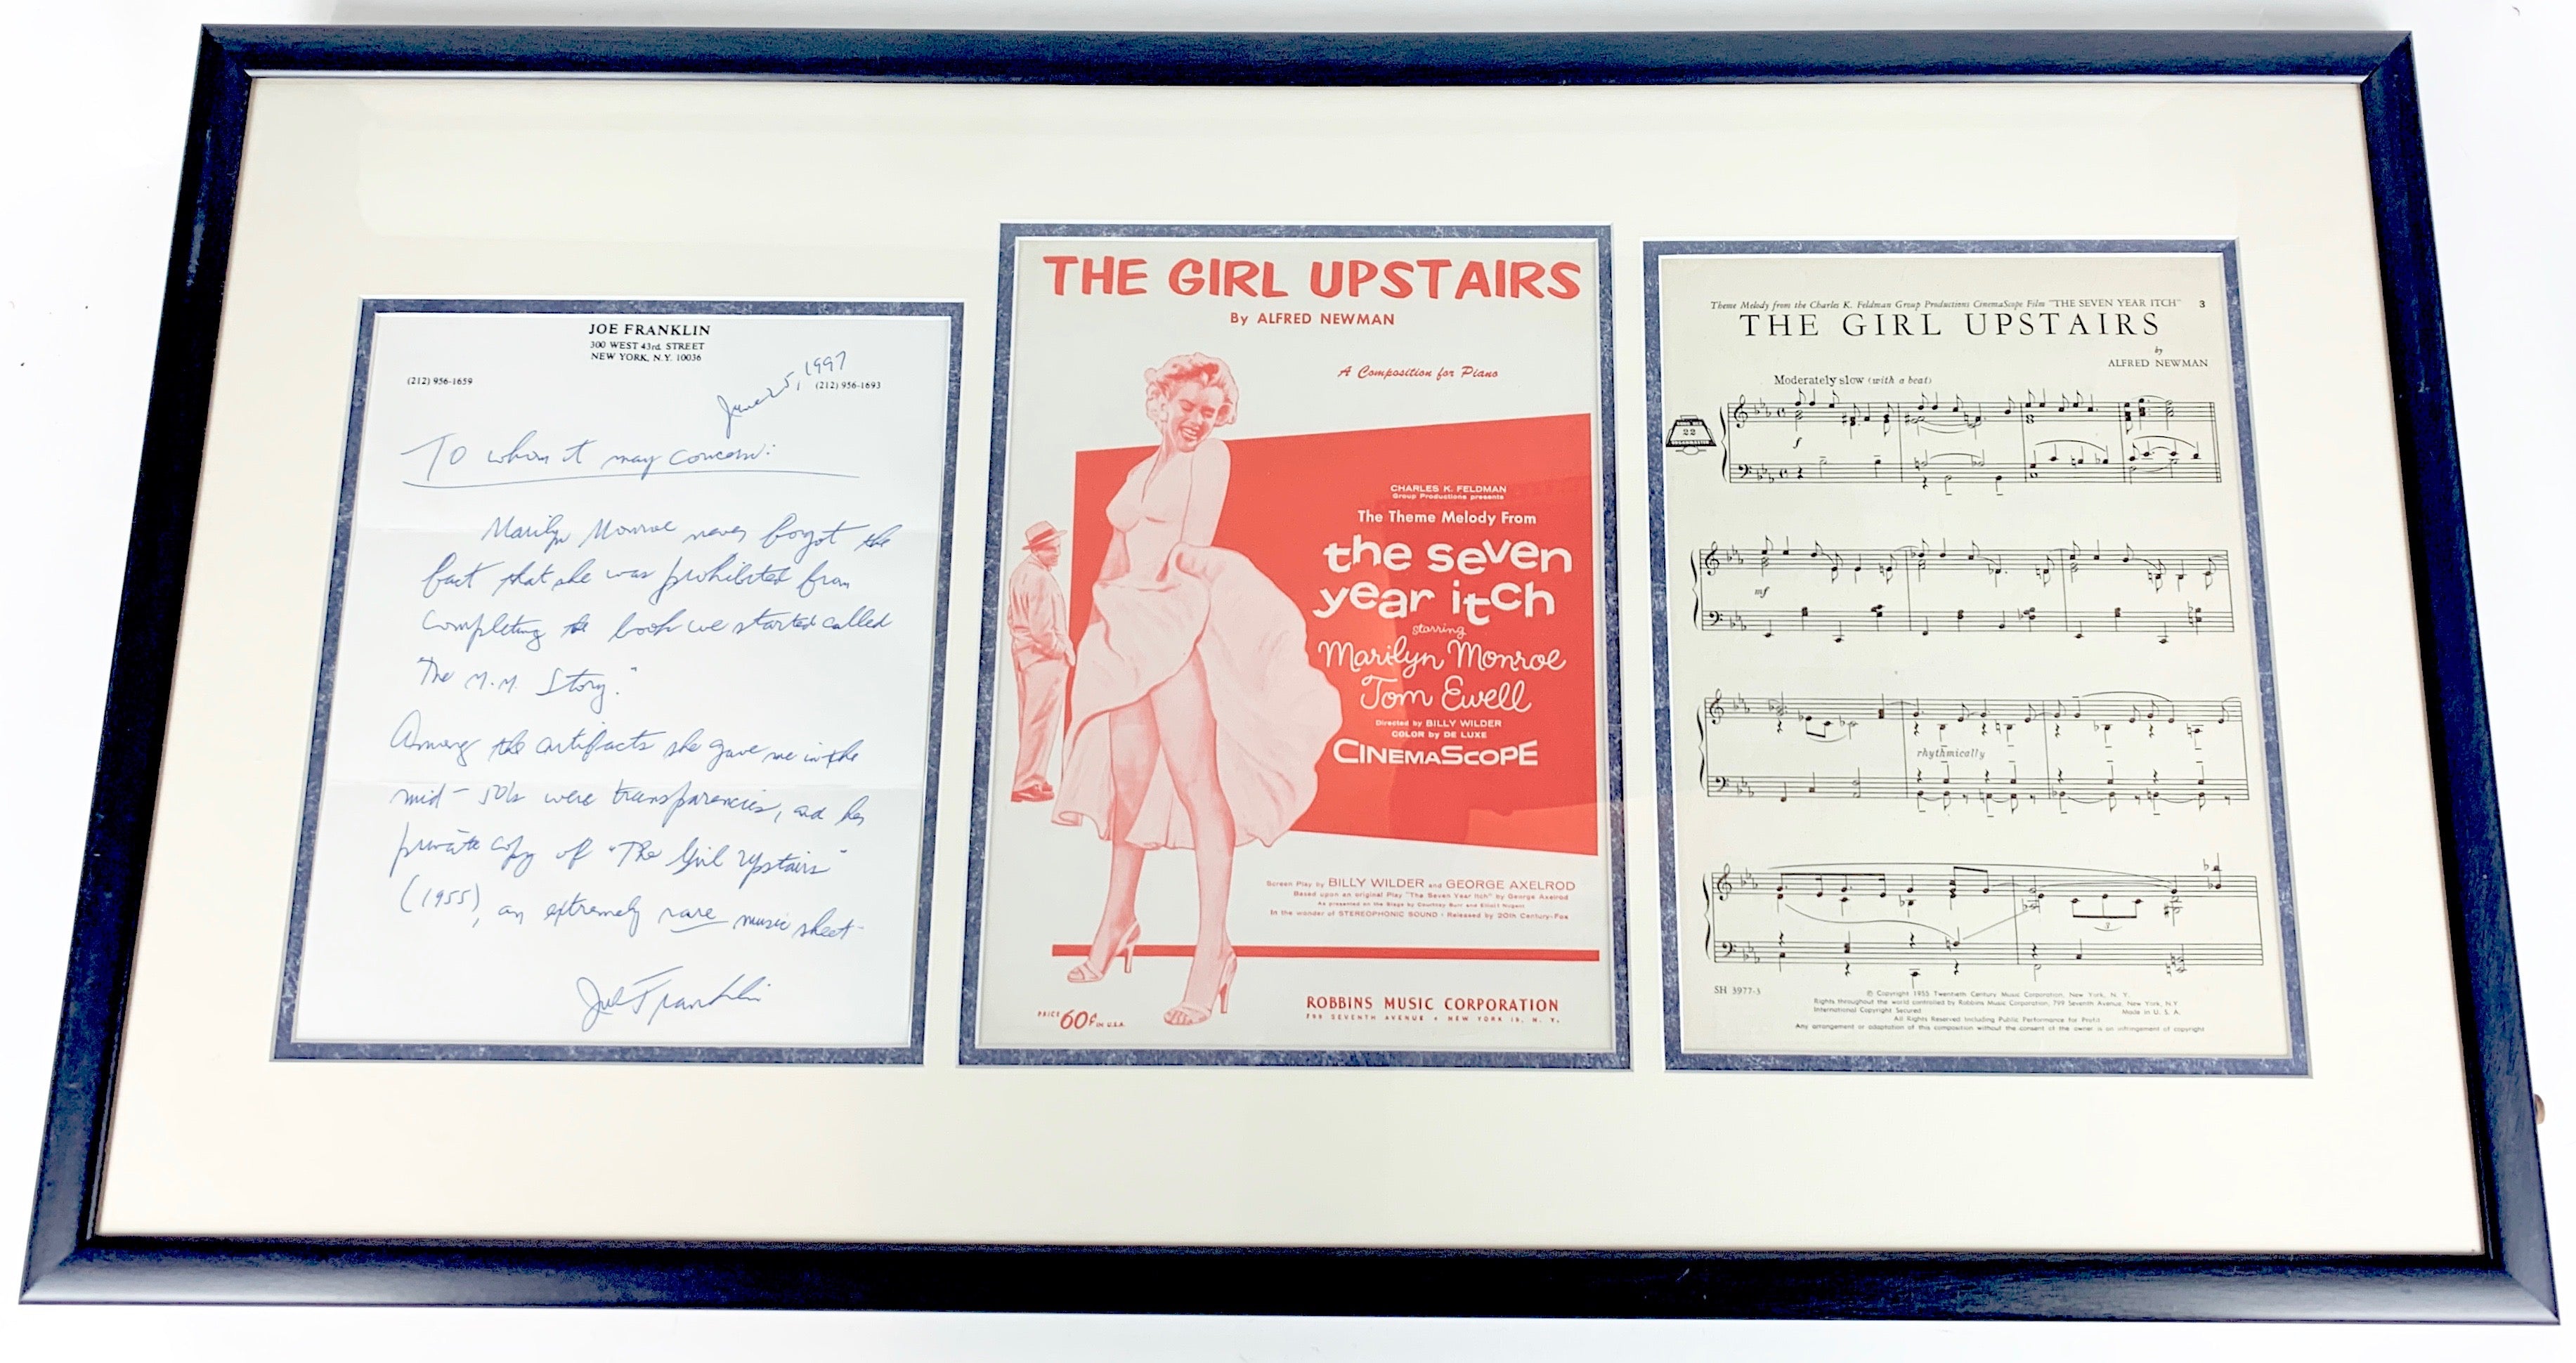 JOE FRANKLIN
300 WEST 43rd. STREET
NEW YORK, N.Y. 10036
June 25, 1997
(212) 956-1659
(212) 956-1693
To whom it may concern:
Marilyn Monroe never forgot the
fact that she was prohibited from
completing the book we started called
"The M.M. Story."
Among the artifacts she gave me in the
mid-50's were transparencies, and her
private copy of "The Girl Upstairs"
(1955), an extremely rare music sheet.
Joe Franklin
THE GIRL UPSTAIRS
By ALFRED NEWMAN
A Composition for Piano
CHARLES K. FELDMAN
Group Productions presents
The Theme Melody From
the seven
year itch
starring
Marilyn Monroe
Tom Ewell
Directed by BILLY WILDER
COLOR by DE LUXE
CINEMASCOPE
Screen Play by BILLY WILDER and GEORGE AXELROD
Based upon an original Play "The Seven Year Itch" by George Axelrod
As presented on the Stage by Courtney Burr and Elliott Nugent
In the wonder of STEREOPHONIC SOUND • Released by 20th Century-Fox
PRICE 60¢ IN U.S.A.
ROBBINS MUSIC CORPORATION
799 SEVENTH AVENUE • NEW YORK 19, N. Y.
Theme Melody from the Charles K. Feldman Group Productions CinemaScope Film "THE SEVEN YEAR ITCH" 3
THE GIRL UPSTAIRS
by
ALFRED NEWMAN
Moderately slow (with a beat)
22
f
mf
rhythmically
3
SH 3977-3
© Copyright 1955 Twentieth Century Music Corporation, New York, N. Y.
Rights throughout the world controlled by Robbins Music Corporation, 799 Seventh Avenue, New York, N.Y.
International Copyright Secured Made in U. S. A.
All Rights Reserved Including Public Performance for Profit
Any arrangement or adaptation of this composition without the consent of the owner is an infringement of copyright